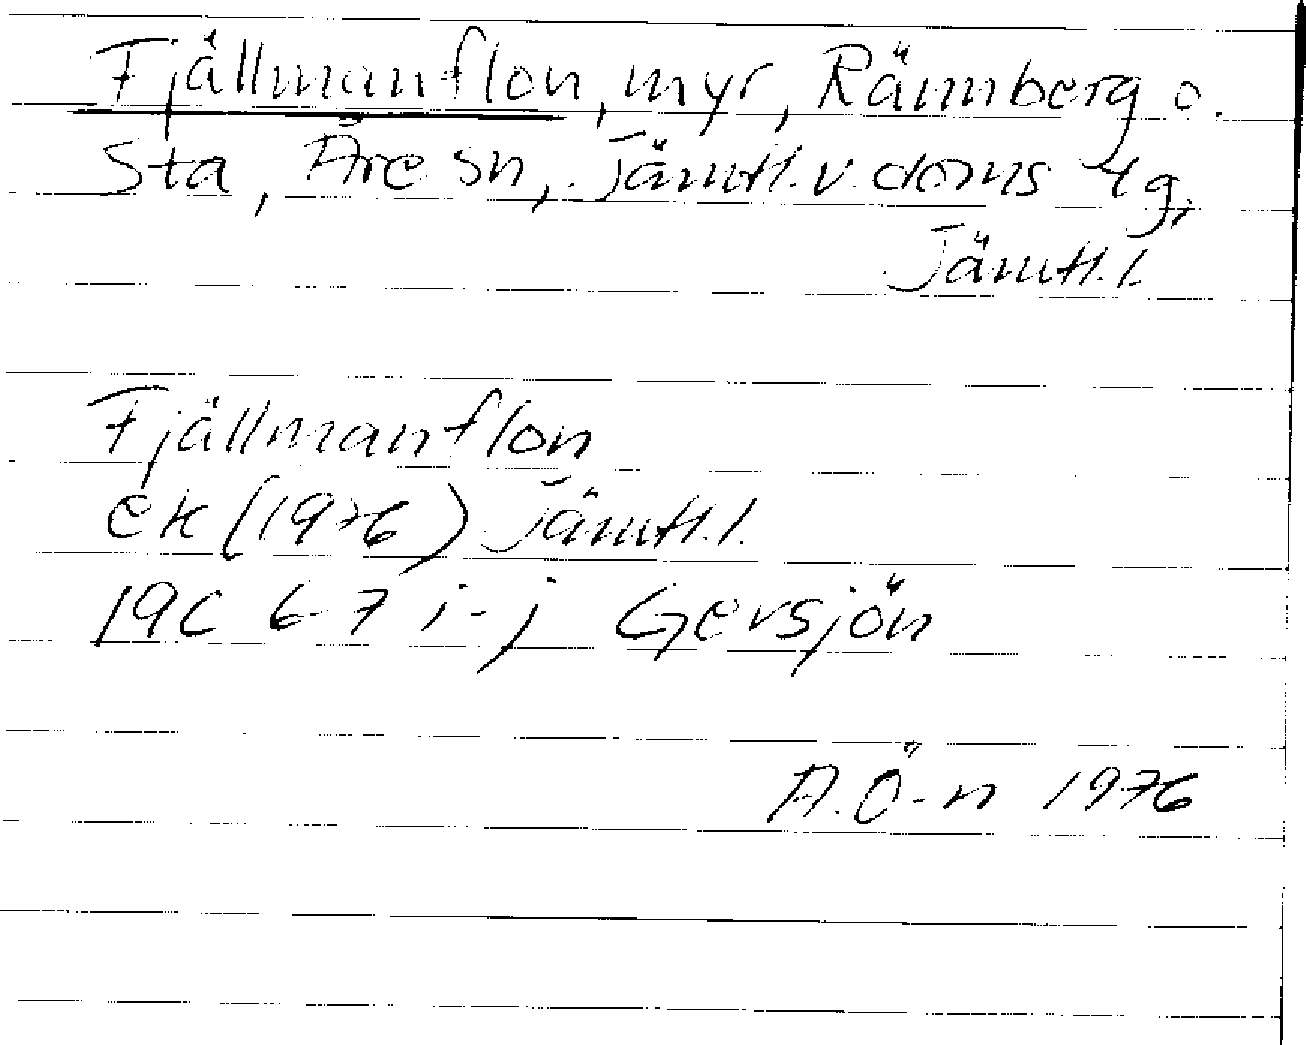 Fjällmanflon, myr, Rännberg o.
Sta, Åre sn, Jämtl. v. doms tg,
Jämtl. l.
Fjällmanflon
ek (1976) Jämtl. l.
19C 6-7 i-j Gersjön
A. Ö-n 1976